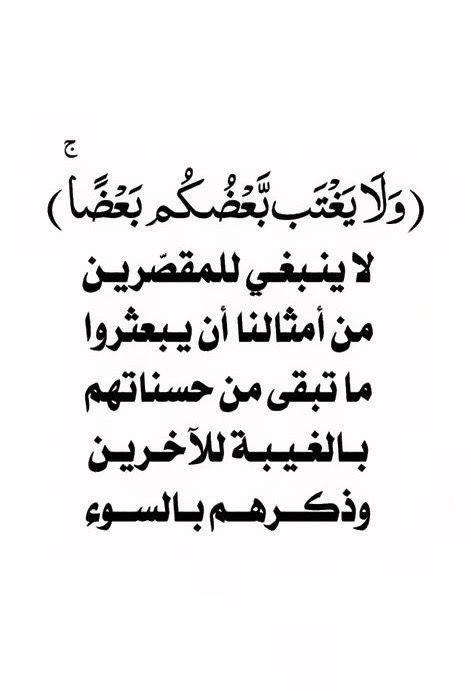 (وَلَا يَغْتَب بَّعْضُكُم بَعْضًا ۚ)
لا ينبغي للمقصّرين
من أمثالنا أن يبعثروا
ما تبقى من حسناتهم
بالغيبة للآخرين
وذكرهم بالسوء